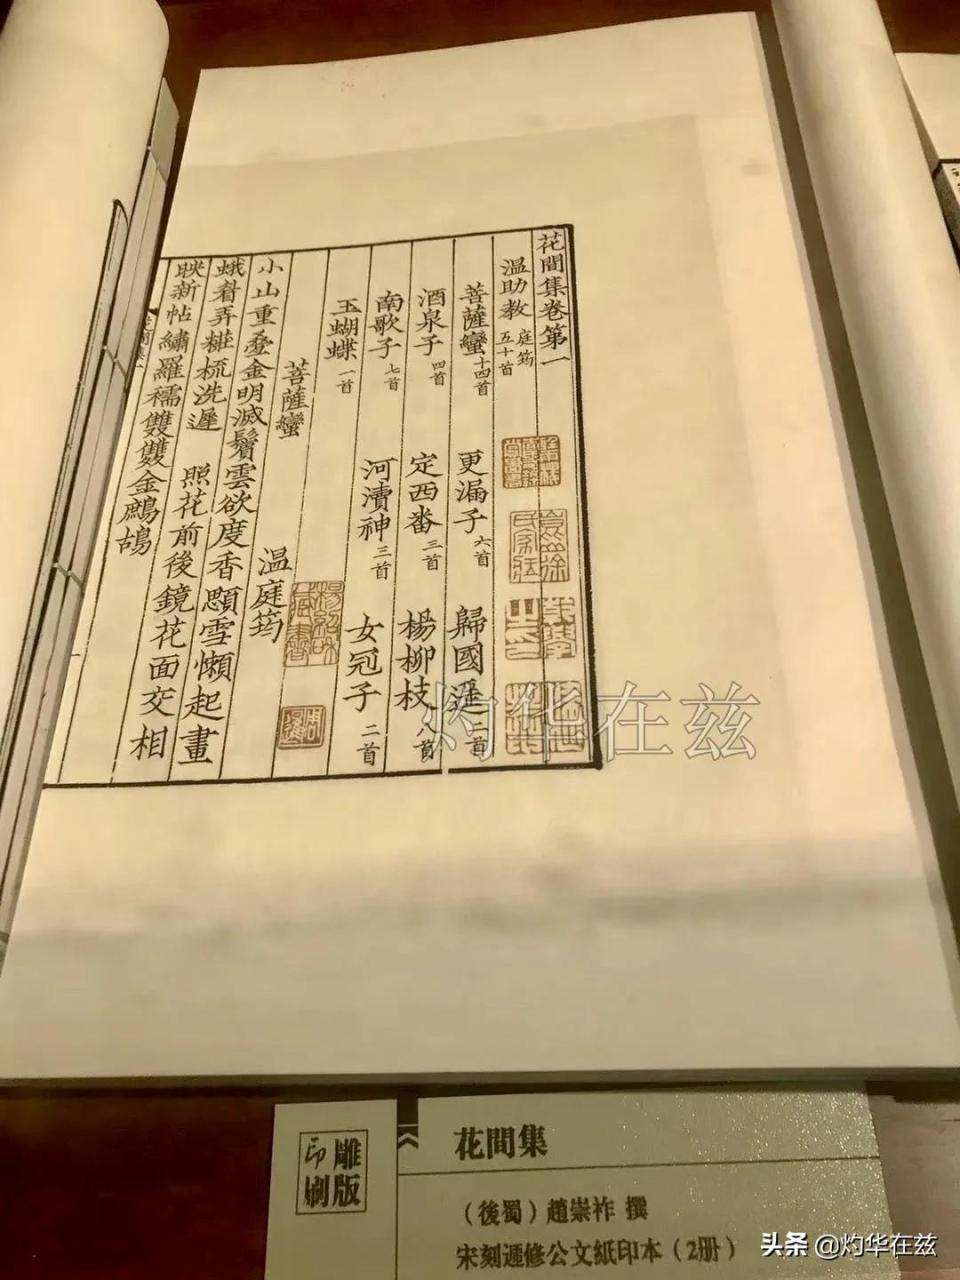 花間集卷第一
温助教 庭筠 五十首
菩薩蠻 十四首 更漏子 六首 歸國遥 二首
酒泉子 四首 定西番 三首 楊柳枝 八首
南歌子 七首 河瀆神 三首 女冠子 二首
玉蝴蝶 一首
菩薩蠻 温庭筠
小山重疊金明滅鬢雲欲度香顋雪懶起畫
蛾眉弄粧梳洗遲 照花前後鏡花面交相
映新帖繡羅襦雙雙金鷓鴣
楊紹和藏書
周暹
灼华在兹
雕版印刷
花間集
（後蜀）趙崇祚 撰
宋刻遞修公文紙印本（2册）
头条 @灼华在兹